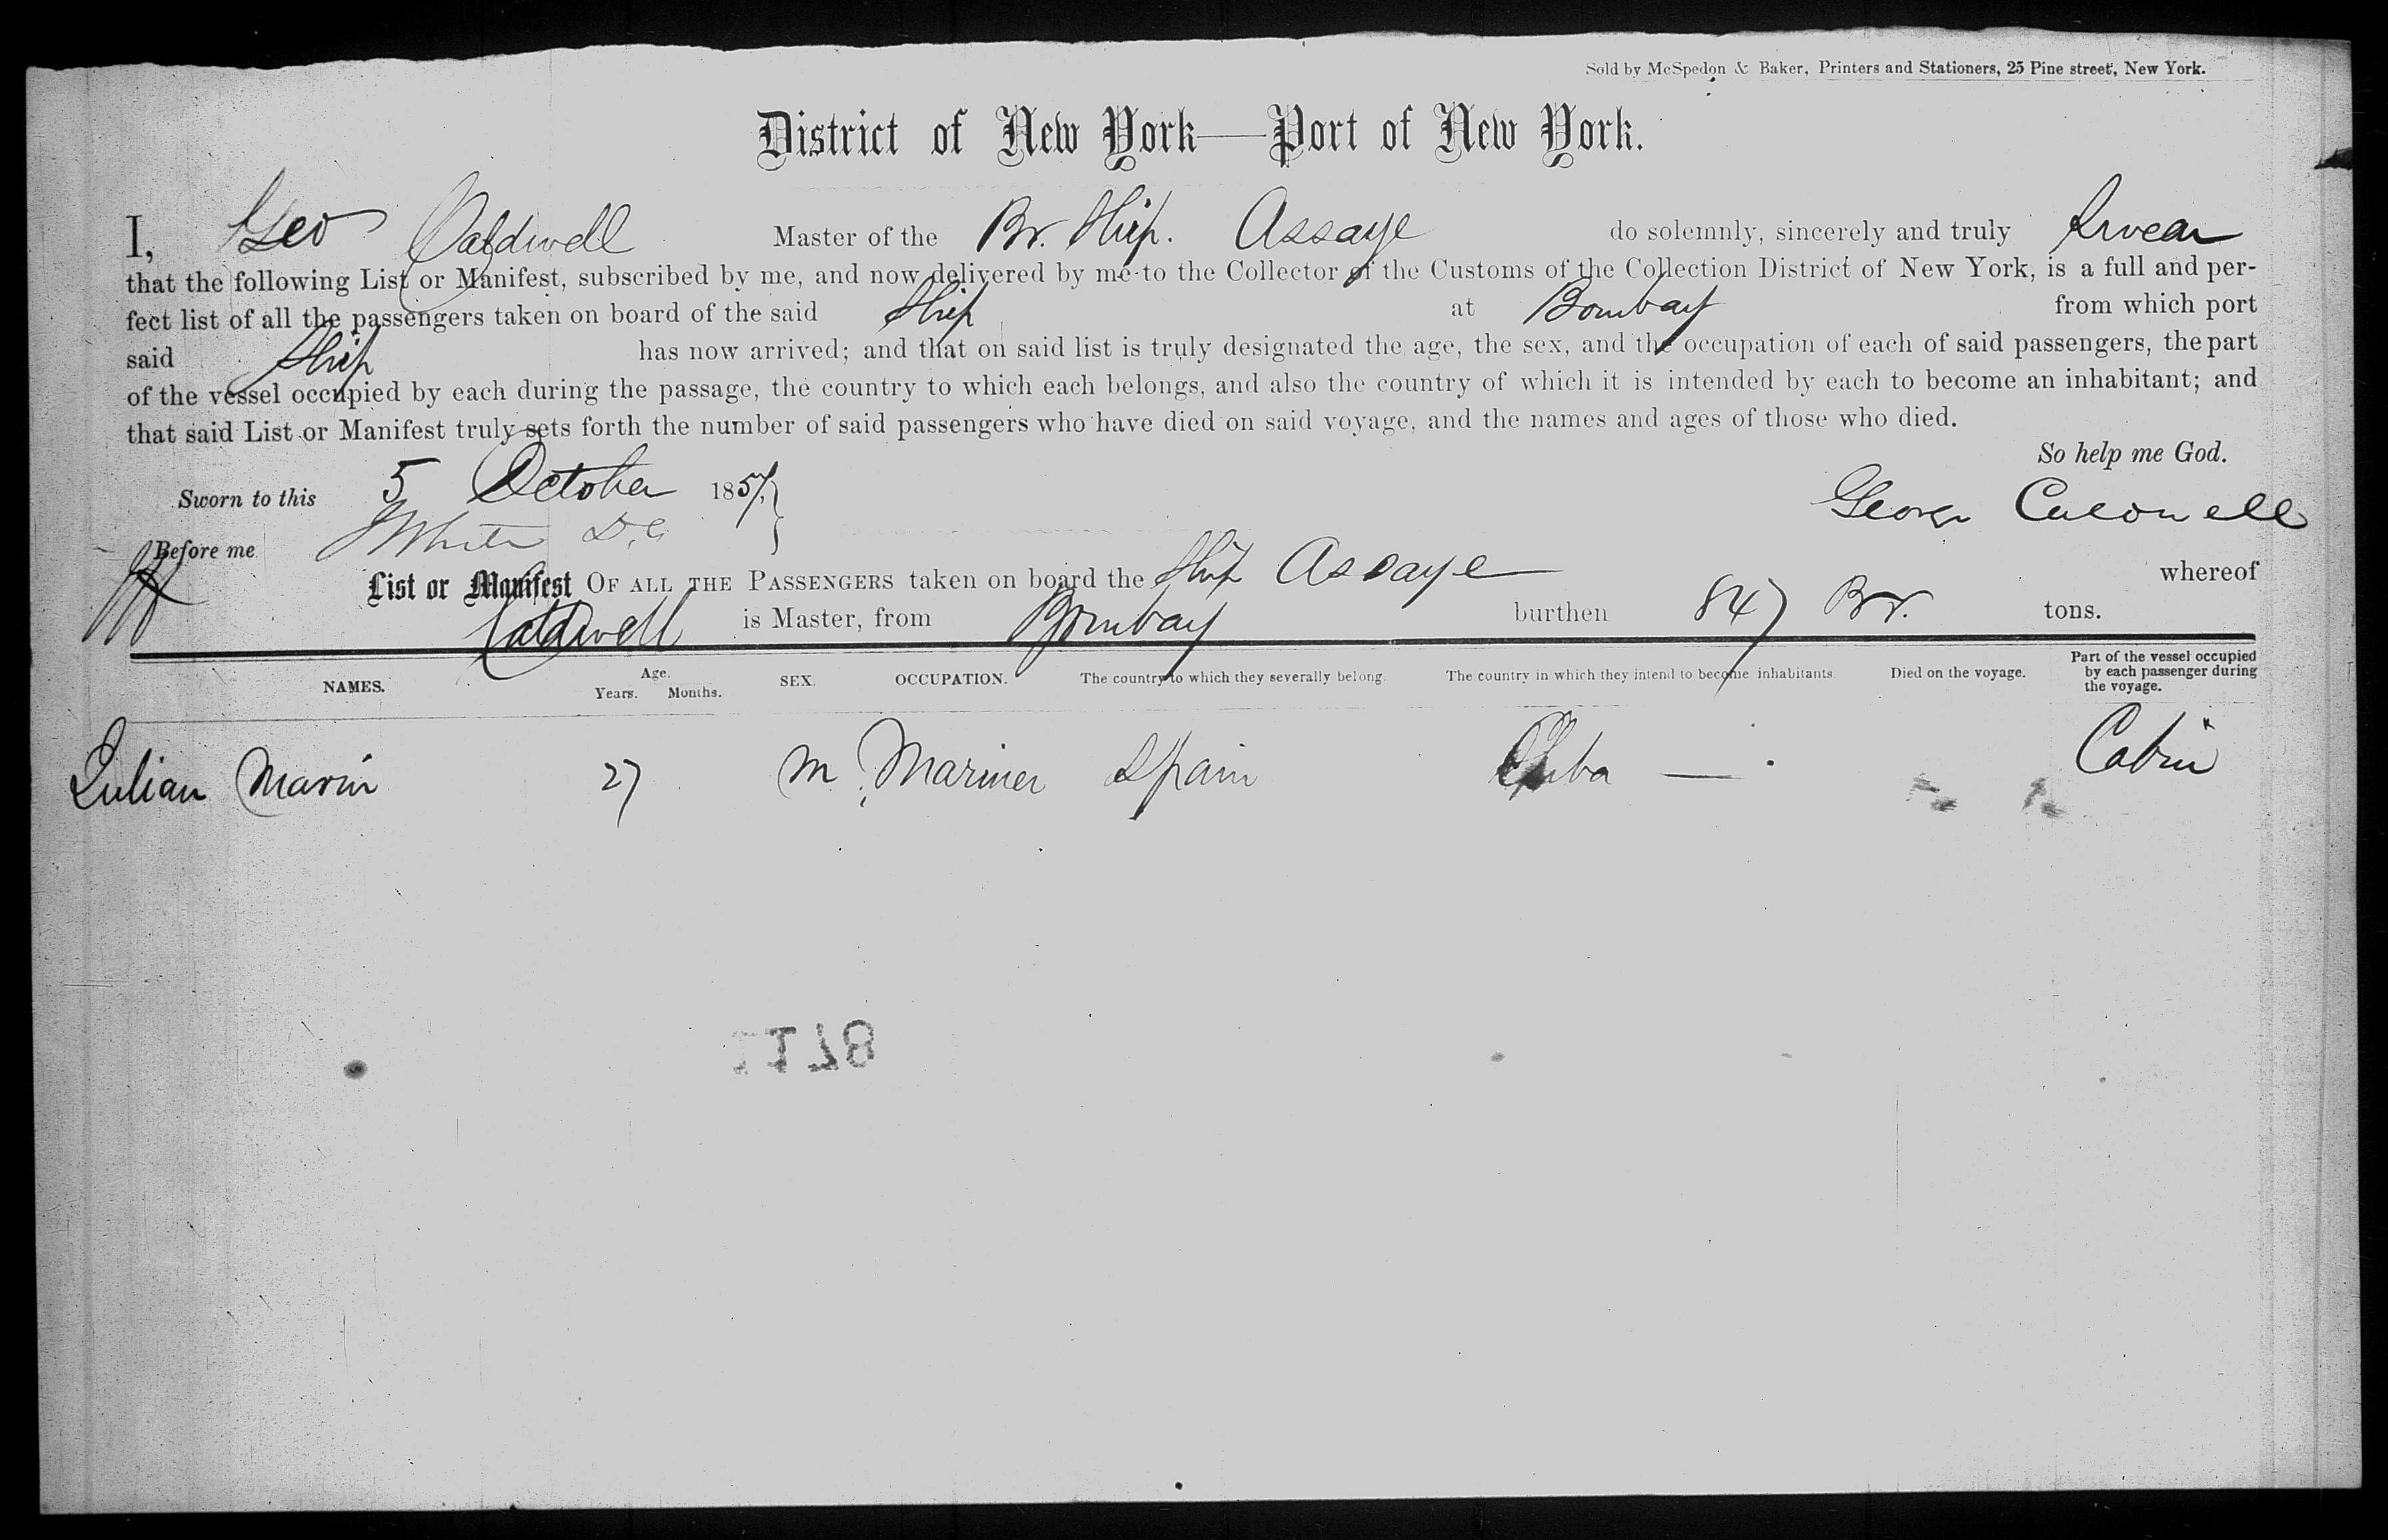 Sold by McSpedon & Baker, Printers and Stationers, 25 Pine street, New York.
District of New York—Port of New York.
I, Geo Caldwell Master of the Br. Ship. Assaye do solemnly, sincerely and truly Swear
that the following List or Manifest, subscribed by me, and now delivered by me to the Collector of the Customs of the Collection District of New York, is a full and per-
fect list of all the passengers taken on board of the said Ship at Bombay from which port
said Ship has now arrived; and that on said list is truly designated the age, the sex, and the occupation of each of said passengers, the part
of the vessel occupied by each during the passage, the country to which each belongs, and also the country of which it is intended by each to become an inhabitant; and
that said List or Manifest truly sets forth the number of said passengers who have died on said voyage, and the names and ages of those who died.
So help me God.
Sworn to this 5 October 1857
George Caldwell
Before me White D.C.
List or Manifest OF ALL THE PASSENGERS taken on board the Ship Assaye whereof
Caldwell is Master, from Bombay burthen 847 Br. tons.
NAMES. Age. Years. Months. SEX. OCCUPATION. The country to which they severally belong. The country in which they intend to become inhabitants. Died on the voyage. Part of the vessel occupied by each passenger during the voyage.
Julian Marin 27 M Mariner Spain Cuba — Cabin